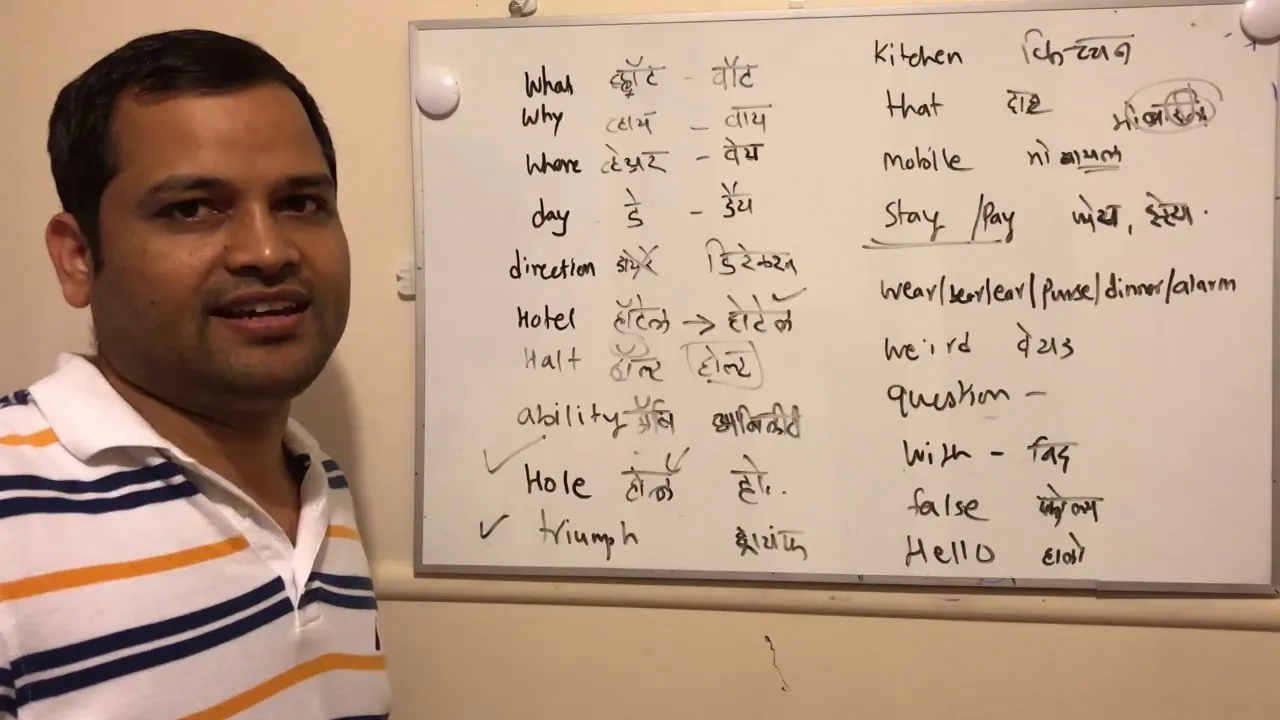 What व्हॉट - वॉट
Why व्हाय - वाय
Where व्हेअर - वेय
day डे - डॅय
direction डायरे डिरेक्शन
Hotel हॉटेल → होटेल
Halt हॉल्ट होल्ट
ability ॲबि अबिलीटी
Hole होल हो
triumph ट्रायंफ
Kitchen किच्यन
that दाट
मोबाईल
mobile मोबायल
Stay /Pay पेय, स्टेय.
wear/year/ear/purse/dinner/alarm
weird वेयड
question -
with - विद
false फोल्स
Hello हालो